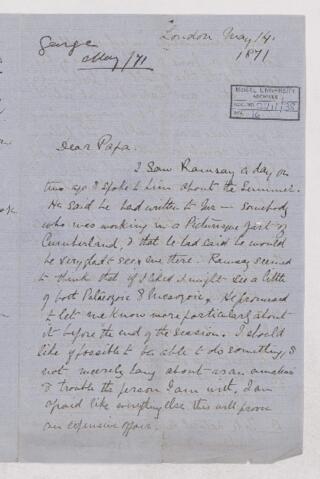 London May 14.
1871
George
May /71
McGILL UNIVERSITY
ARCHIVES
ACC. NO.
REF. 16
Dear Papa.
I saw Ramsay a day or
two ago & spoke to him about the summer.
He said he had written to Mr — somebody
who was working in a Picturesque part of
Cumberland, & that he had said he would
be very glad to see me there. Ramsay seemed
to think that if I liked I might see a little
of both Palæozoic & Mesozoic. He promised
to let me know more particulars about
it before the end of the session. I should
like if possible to be able to do something, &
not merely hang about as an amateur
& trouble the person I am with. I am
afraid like everything else this will prove
an expensive affair.